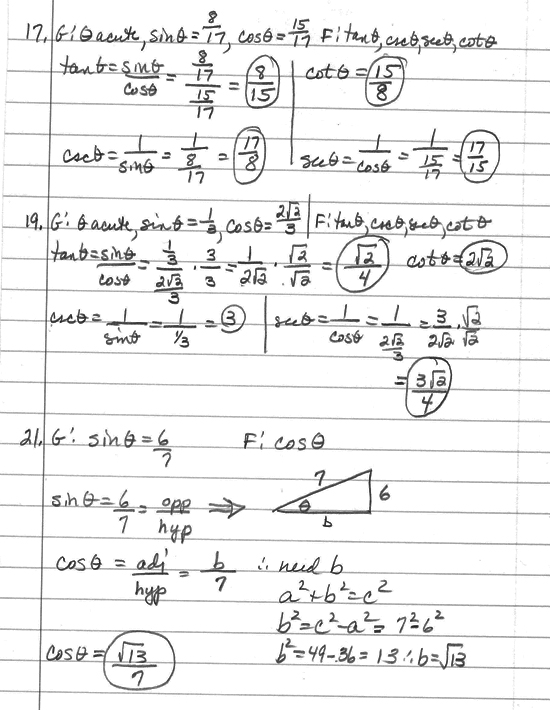 17. G: θ acute, sinθ = 8/17, cosθ = 15/17 F: tanθ, cscθ, secθ, cotθ
tanθ = sinθ/cosθ = (8/17)/(15/17) = 8/15 | cotθ = 15/8
cscθ = 1/sinθ = 1/(8/17) = 17/8 | secθ = 1/cosθ = 1/(15/17) = 17/15
19. G: θ acute, sinθ = 1/3, cosθ = 2√2/3 | F: tanθ, cscθ, secθ, cotθ
tanθ = sinθ/cosθ = (1/3)/(2√2/3) · 3/3 = 1/(2√2) · √2/√2 = √2/4 cotθ = 2√2
cscθ = 1/sinθ = 1/(1/3) = 3 | secθ = 1/cosθ = 1/(2√2/3) = 3/(2√2) · √2/√2
= 3√2/4
21. G: sinθ = 6/7 F: cosθ
sinθ = 6/7 = opp/hyp ⇒ 7 6 θ b
cosθ = adj/hyp = b/7 ∴ need b
a²+b²=c²
b²=c²-a²= 7²-6²
cosθ = √13/7 b²=49-36=13 ∴ b=√13